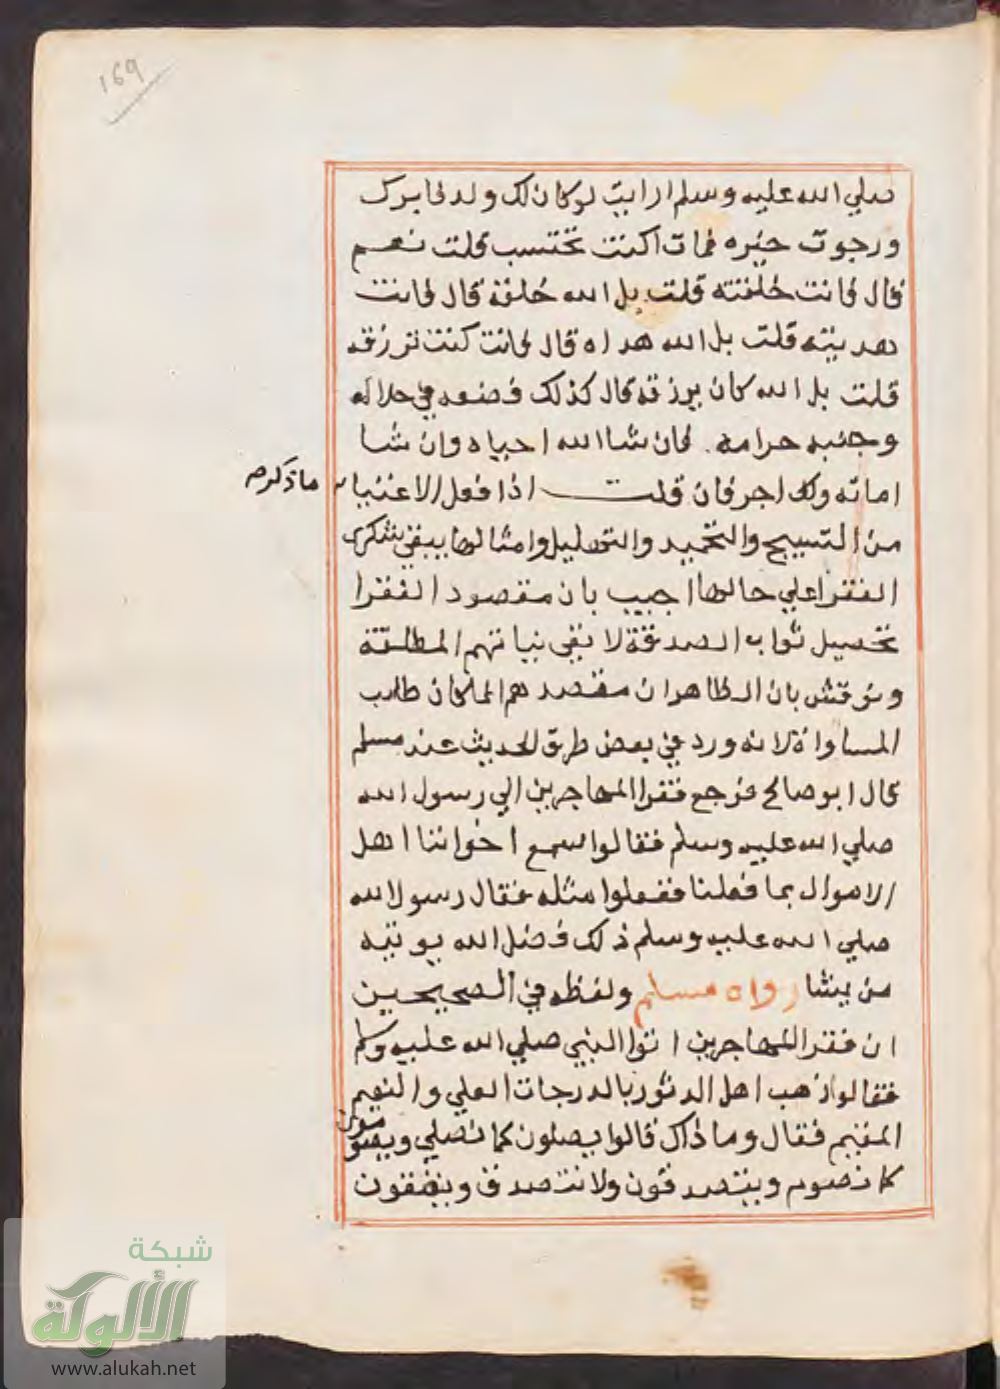 169
صلي الله عليه وسلم ارايت لو كان لك ولد فابرك
ورجوت خيره فمات اكنت تحتسب قلت نعم
قال فانت خلقته قلت بل الله خلقه قال فانت
هديته قلت بل الله هداه قال فانت كنت ترزقه
قلت بل الله كان يرزقه قال كذلك فضعه في حلاله
وجنبه حرامه فان شا الله احياه وان شا
اماته ولك اجر فان قلت اذا فعل الاغنيا ما ذكره
من التسبيح والتحميد والتهليل وامثالها يبقي شكوي
الفقرا علي حالها اجيب بان مقصود الفقرا
تحصيل ثواب الصدقة لا بقي نياتهم المطلقة
ونوقش بان الظاهر ان مقصدهم انما كان طلب
المساواة لانه ورد في بعض طرق الحديث عند مسلم
قال ابو صالح فرجع فقرا المهاجرين الي رسول الله
صلي الله عليه وسلم فقالوا سمع اخواننا اهل
الاموال بما فعلنا ففعلوا مثله فقال رسول الله
صلي الله عليه وسلم ذلك فضل الله يوتيه
من يشا رواه مسلم ولفظه في الصحيحين
ان فقرا المهاجرين اتوا النبي صلي الله عليه وسلم
فقالوا ذهب اهل الدثور بالدرجات العلي والنعيم
المقيم فقال وما ذاك قالوا يصلون كما نصلي ويصومون
كما نصوم ويتصدقون ولا نتصدق وينفقون
شبكة
الألوكة
www.alukah.net